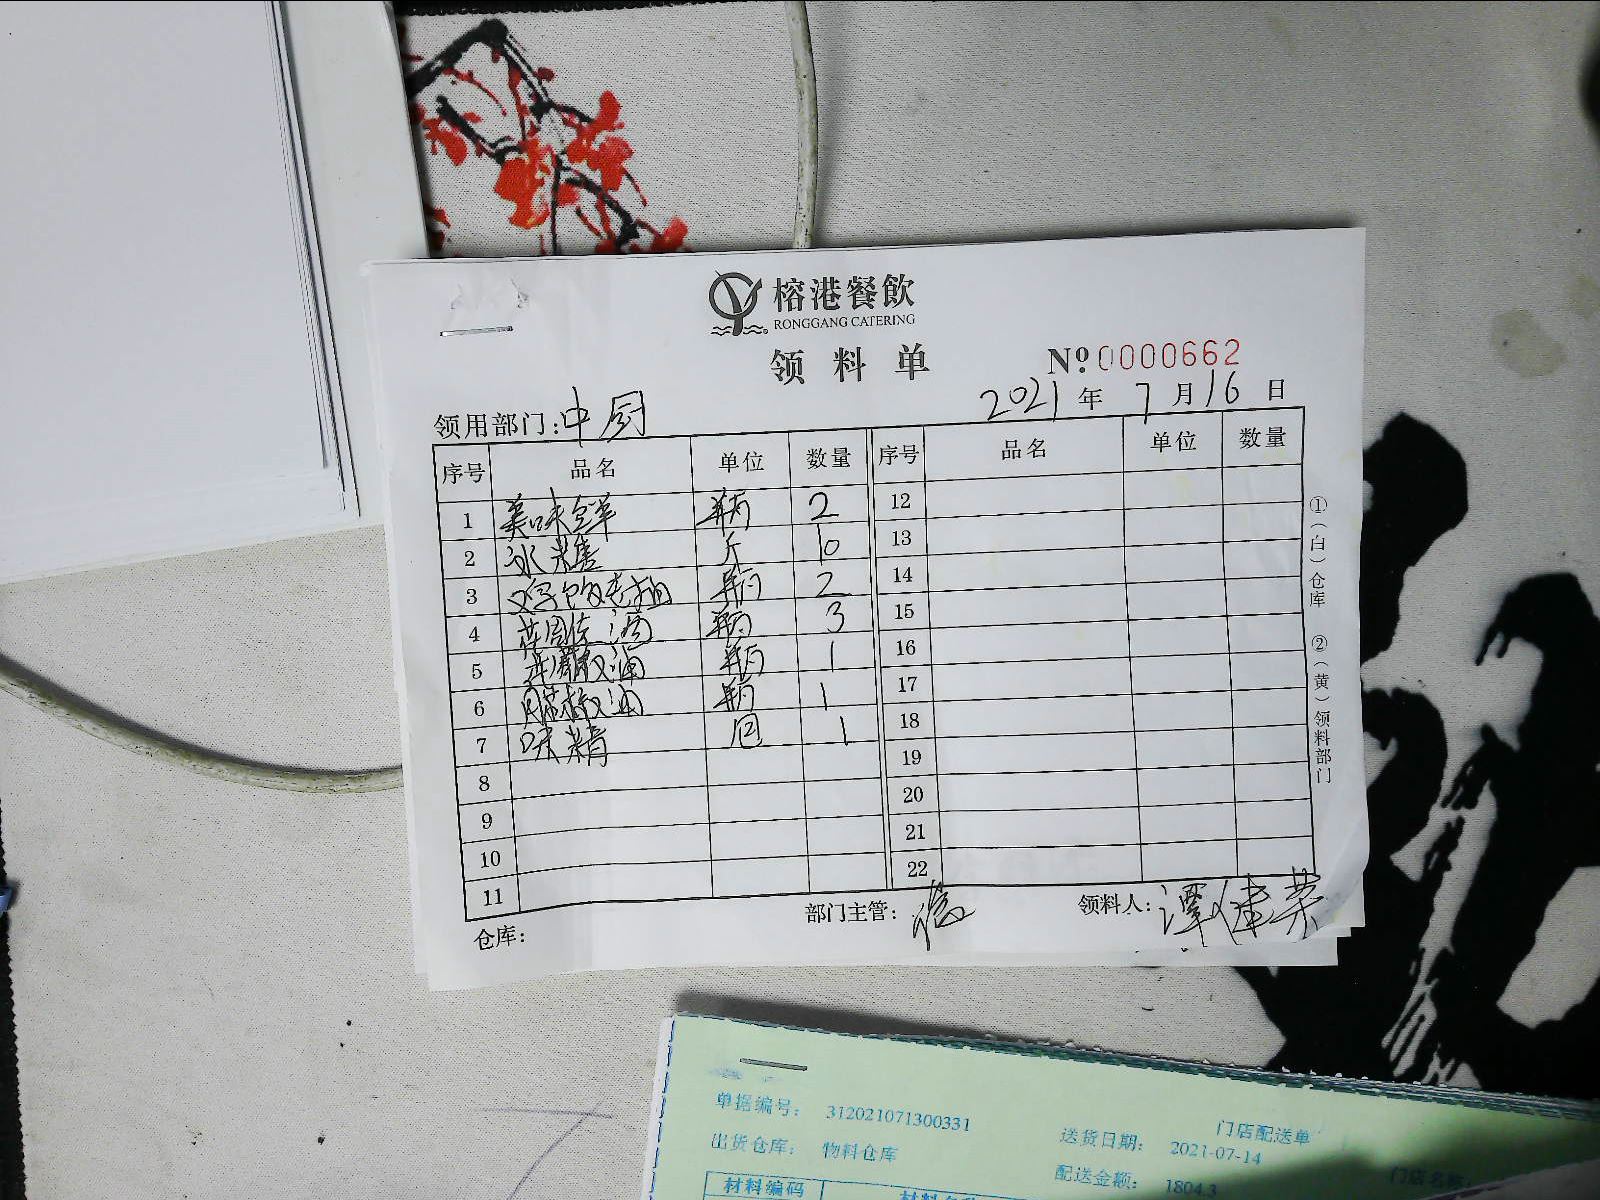 榕港餐飲
RONGGANG CATERING
领料单
№0000662
领用部门:中厨
2021年7月16日
序号 品名 单位 数量 序号 品名 单位 数量
1 美味鲜 瓶 2 12
2 冰糖 斤 10 13
3 瓶 2 14
4 瓶 3 15
5 瓶 1 16
6 瓶 1 17
7 味精 1 18
8 19
9 20
10 21
11 22
仓库: 部门主管: 领料人:谭健荣
①(白)仓库 ②(黄)领料部门
门店配送单
单据编号: 312021071300331 送货日期: 2021-07-14
出货仓库: 物料仓库 配送金额: 1804.3
材料编码